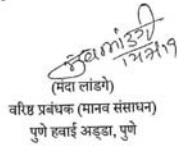 (मंदा लांडगे)
वरिष्ठ प्रबंधक (मानव संसाधन)
पुणे हवाई अड्डा, पुणे